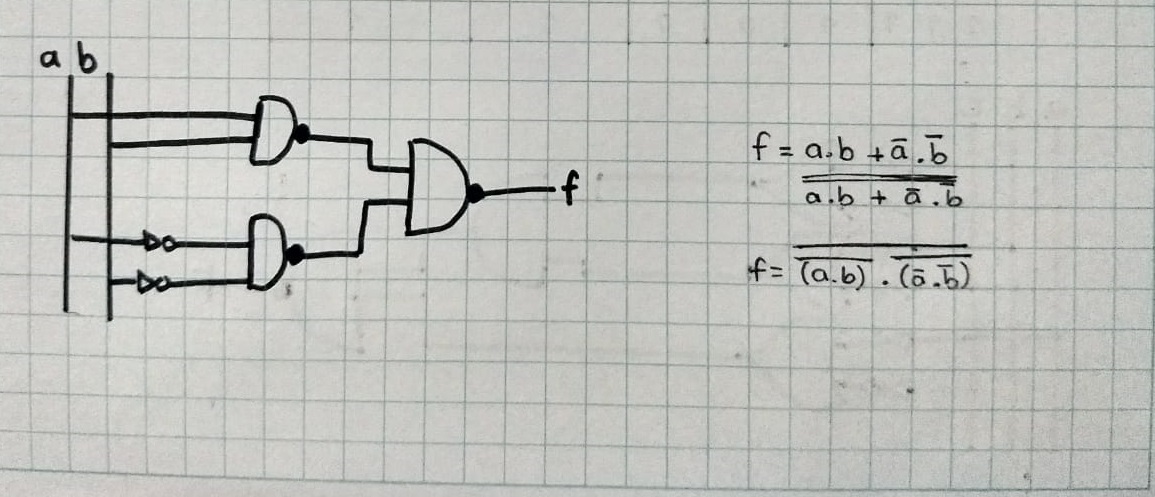 a b
f
f = a.b + ā.b̅
a.b + ā.b̅
f = (a.b) . (ā.b̅)